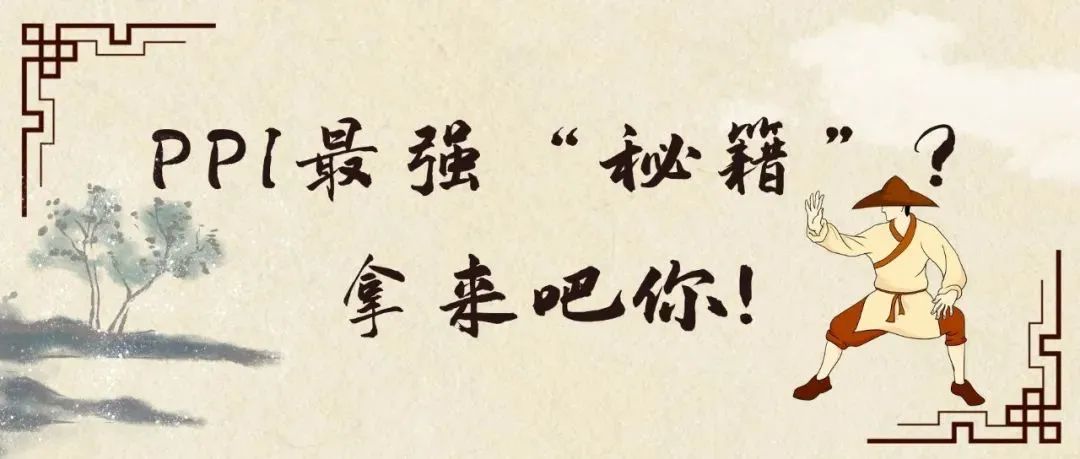 PPI最强“秘籍”？
拿来吧你！